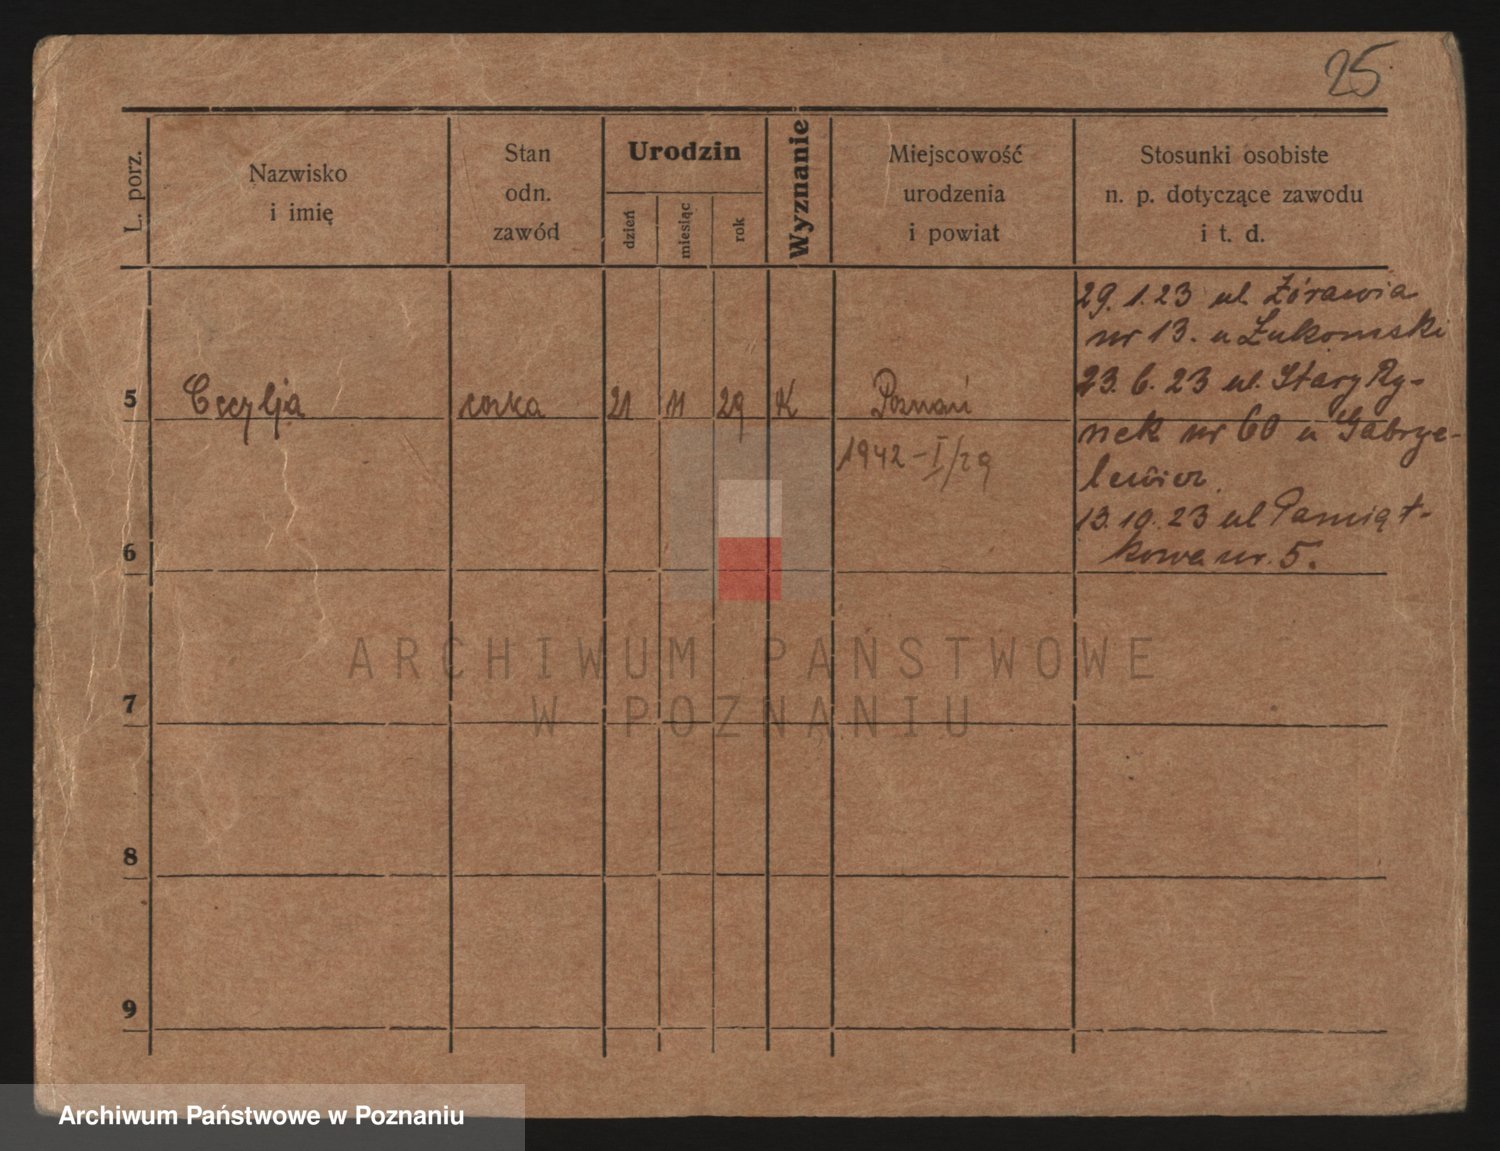 25
L. porz.
Nazwisko
i imię
Stan
odn.
zawód
Urodzin
dzień
miesiąc
rok
Wyznanie
Miejscowość
urodzenia
i powiat
Stosunki osobiste
n. p. dotyczące zawodu
i t. d.
29. 1. 23 ul. Żórawia
nr 13. u Żukomski
23. 6. 23 ul. Stary Ry-
5 Cecylja corka 21 11 29 K Poznań
nek nr 60 u Gabrye-
1942-I/29
lewicz.
13. 10. 23 ul Pamiąt-
kowa nr. 5.
6
ARCHIWUM PAŃSTWOWE
W POZNANIU
7
8
9
Archiwum Państwowe w Poznaniu